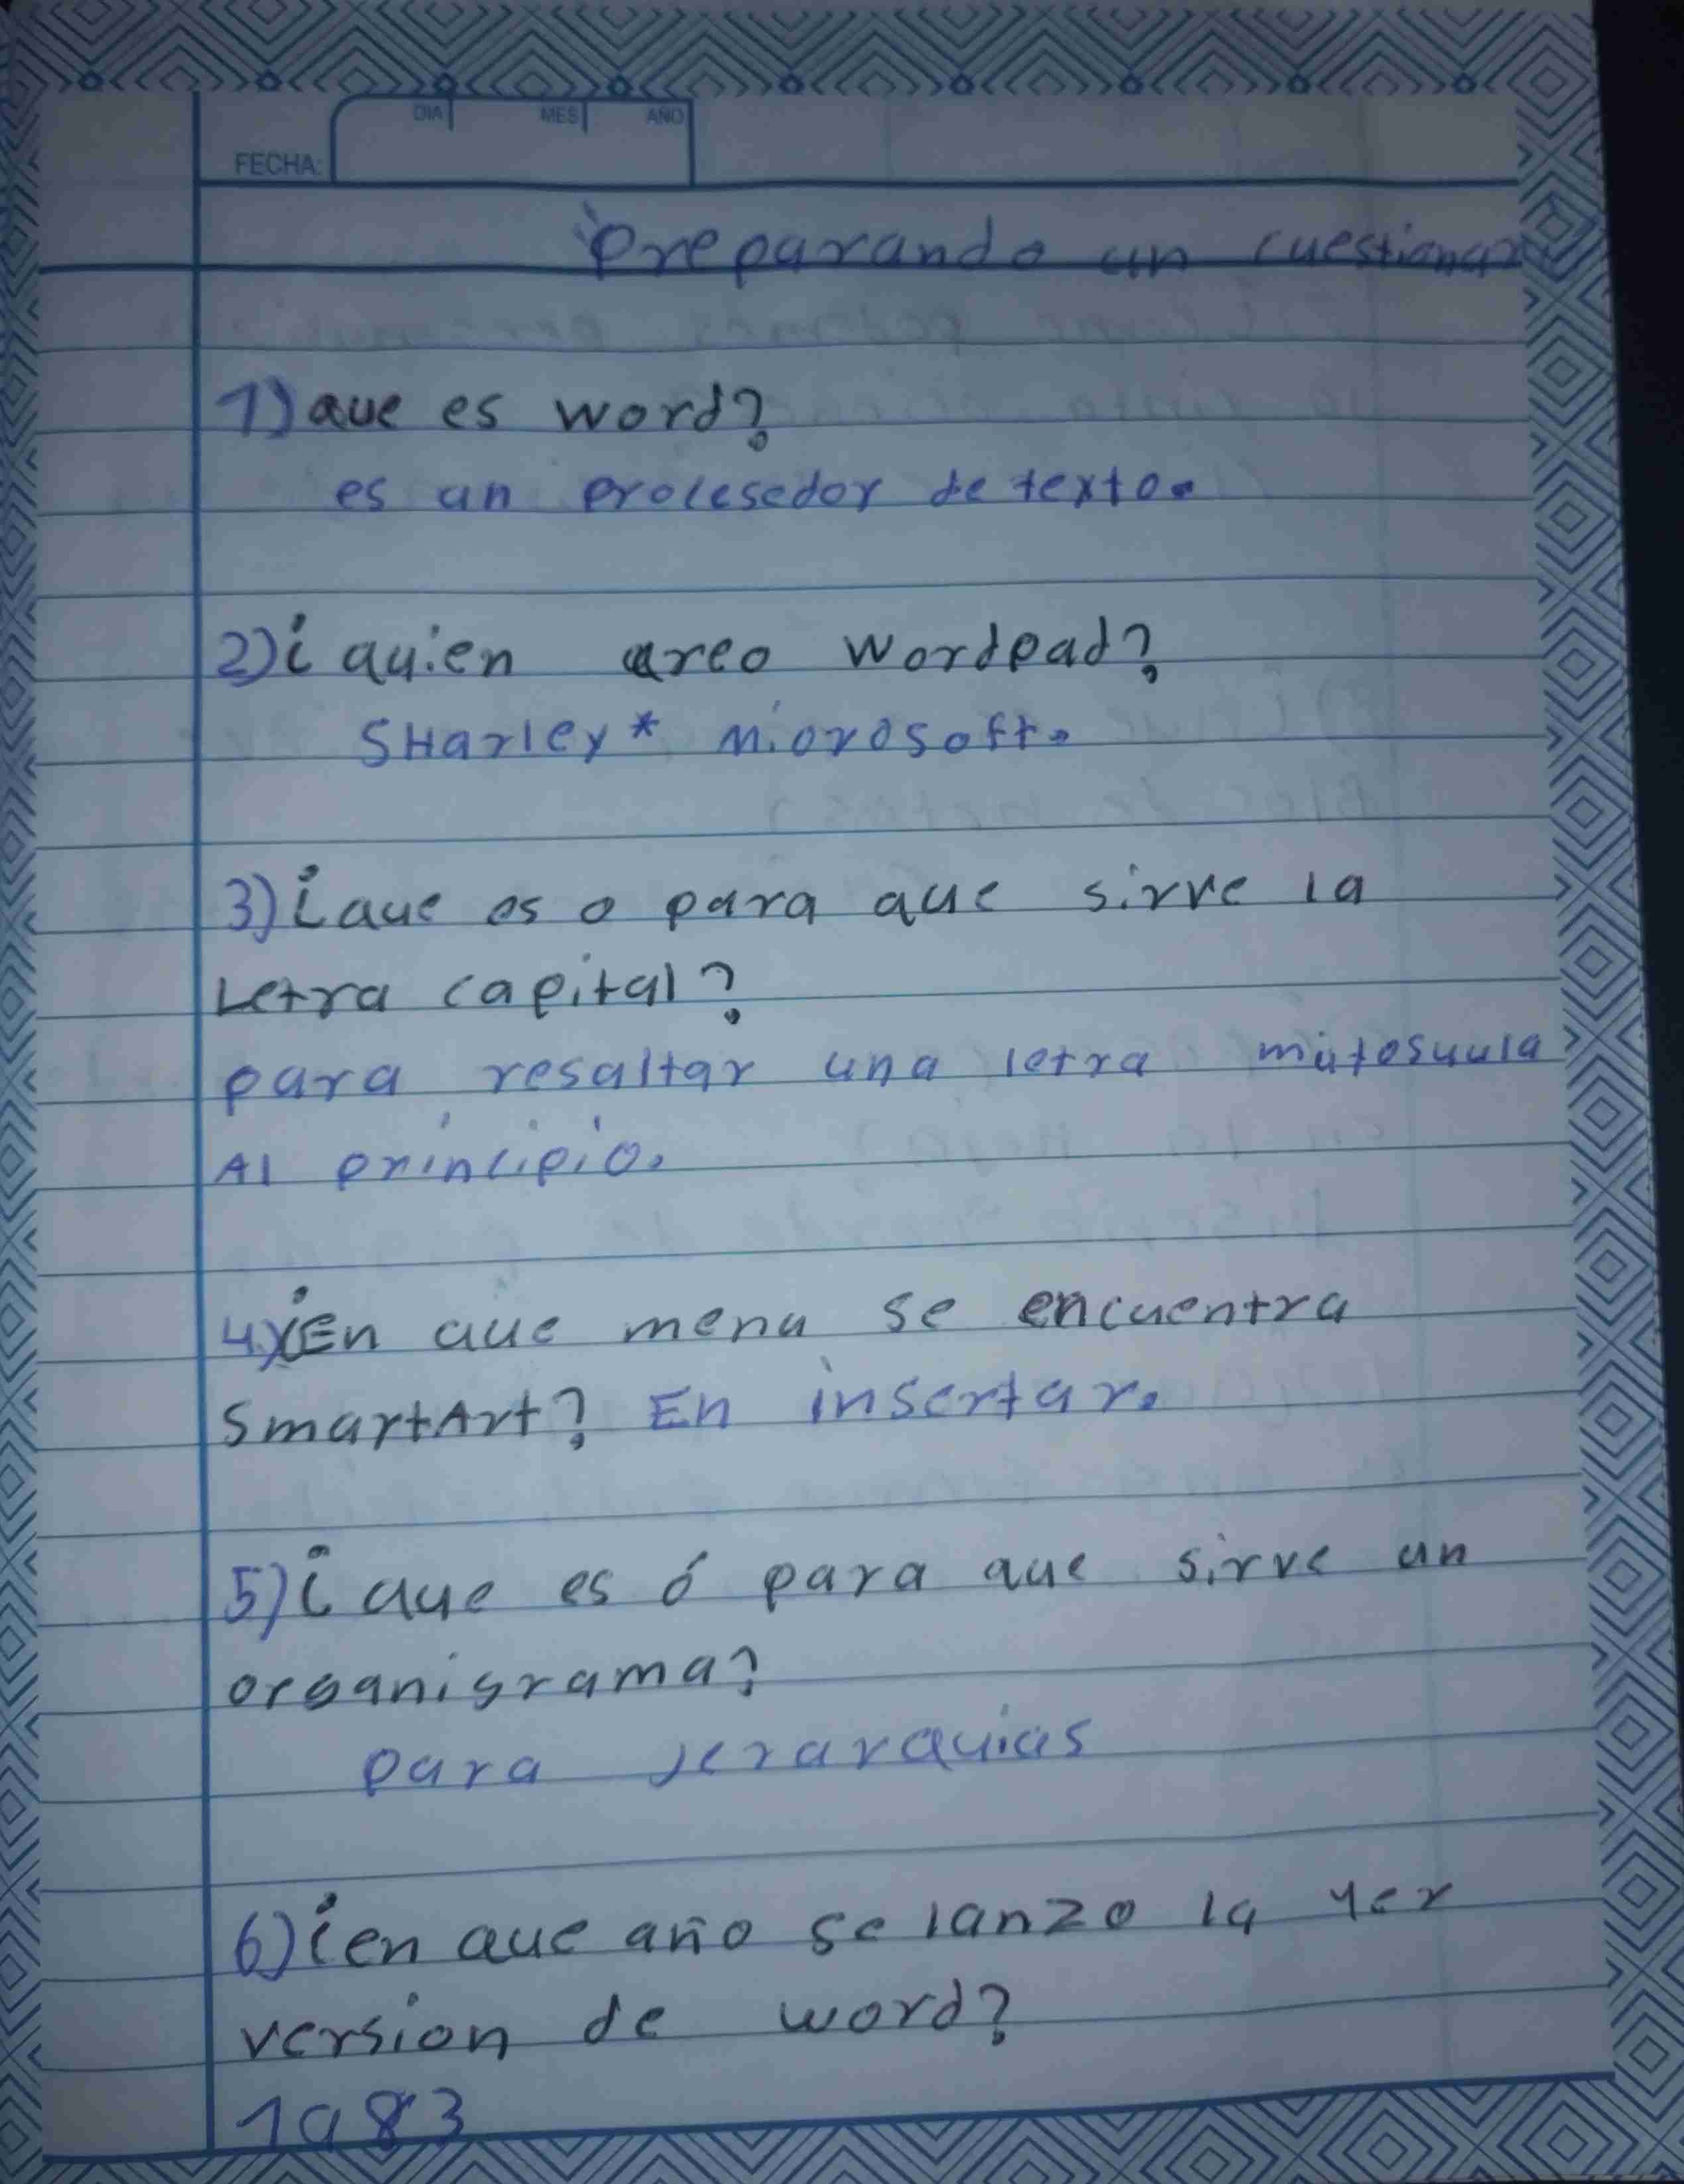 DIA MES AÑO
FECHA:
Preparando un cuestionar
1) que es word?
es un procesedor de texto.
2) ¿ quien creo Wordpad?
SHarley* Microsoft.
3) ¿que es o para que sirve la
Letra capital?
para resaltar una letra
Al principio.
4) ¿En que menu se encuentra
SmartArt? En insertar.
5) ¿ que es ó para que sirve un
organigrama?
para jerarquias
6) ¿en que año se lanzo la 1er
version de word?
1983